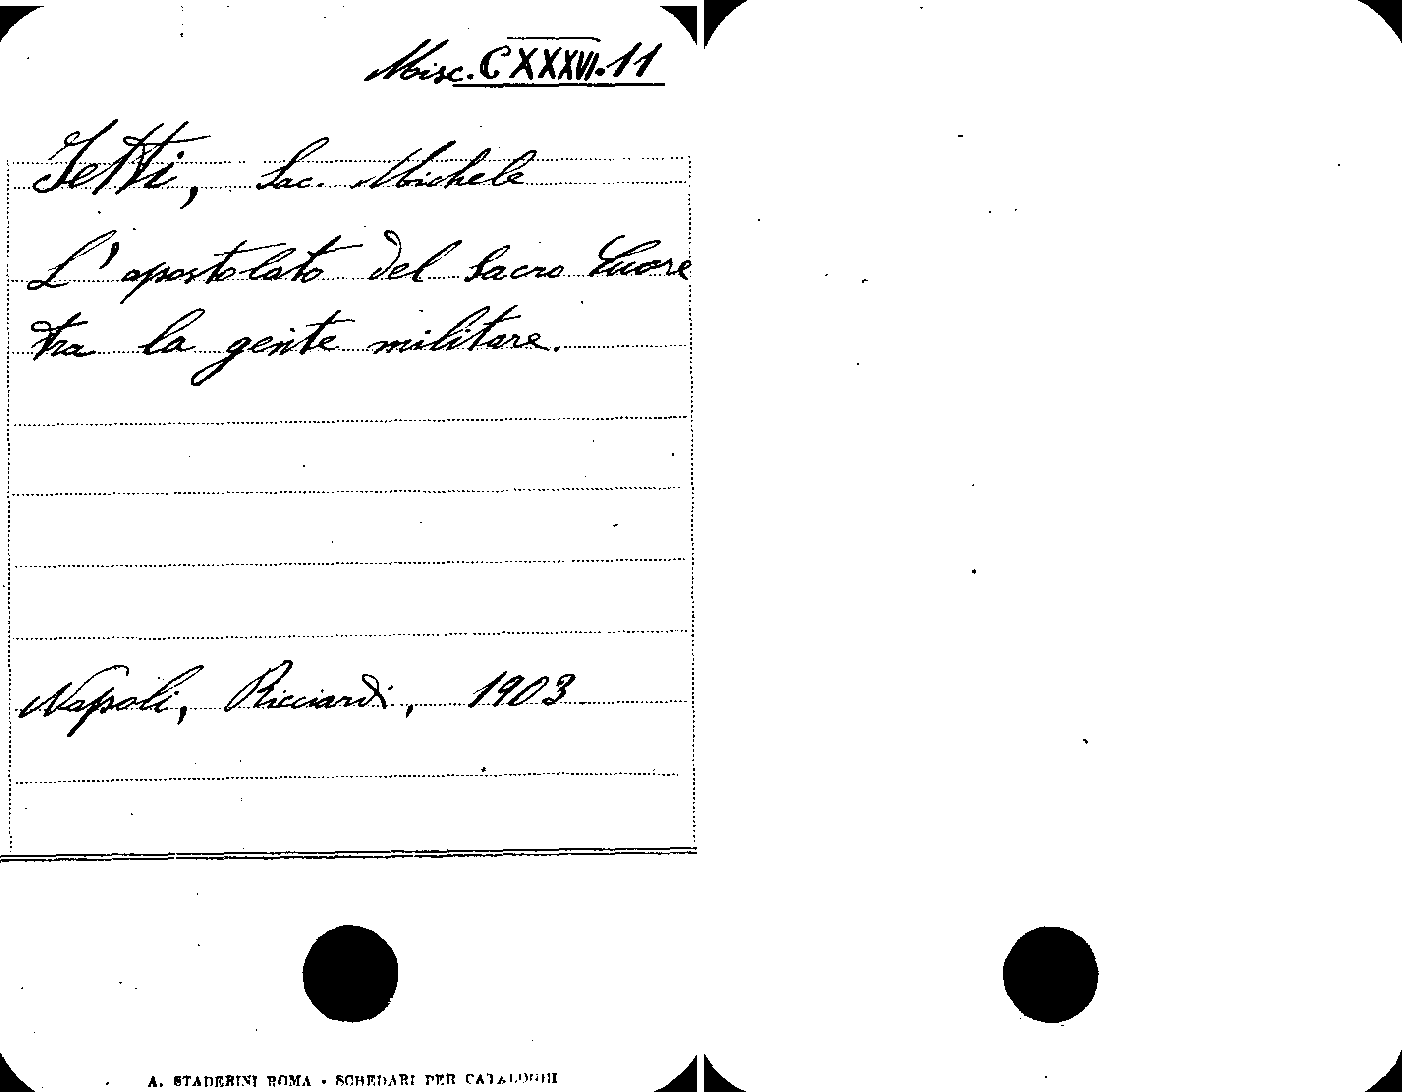 Misc. CXXXVI. 11
Jetti, Sac. Michele
L'apostolato del Sacro Cuore
tra la gente militare.
Napoli, Ricciardi, 1903
A. STADERINI ROMA - SCHEDARI PER CATALOGHI